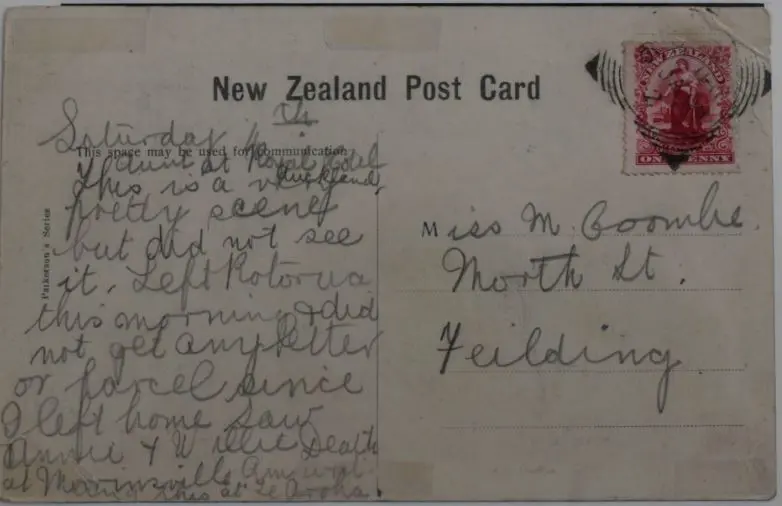 New Zealand Post Card
This space may be used for communication
Parkerson's Series
NEW ZEALAND
ONE PENNY
Saturday
at Royal Hotel
Auckland,
This is a
pretty scene
but did not see
it. Left Rotorua
this morning & did
not get any letter
or parcel since
I left home Saw
Annie & Willie
at Morrinsville Am
this at Te Aroha.
Miss M. Coombe.
North St.
Feilding